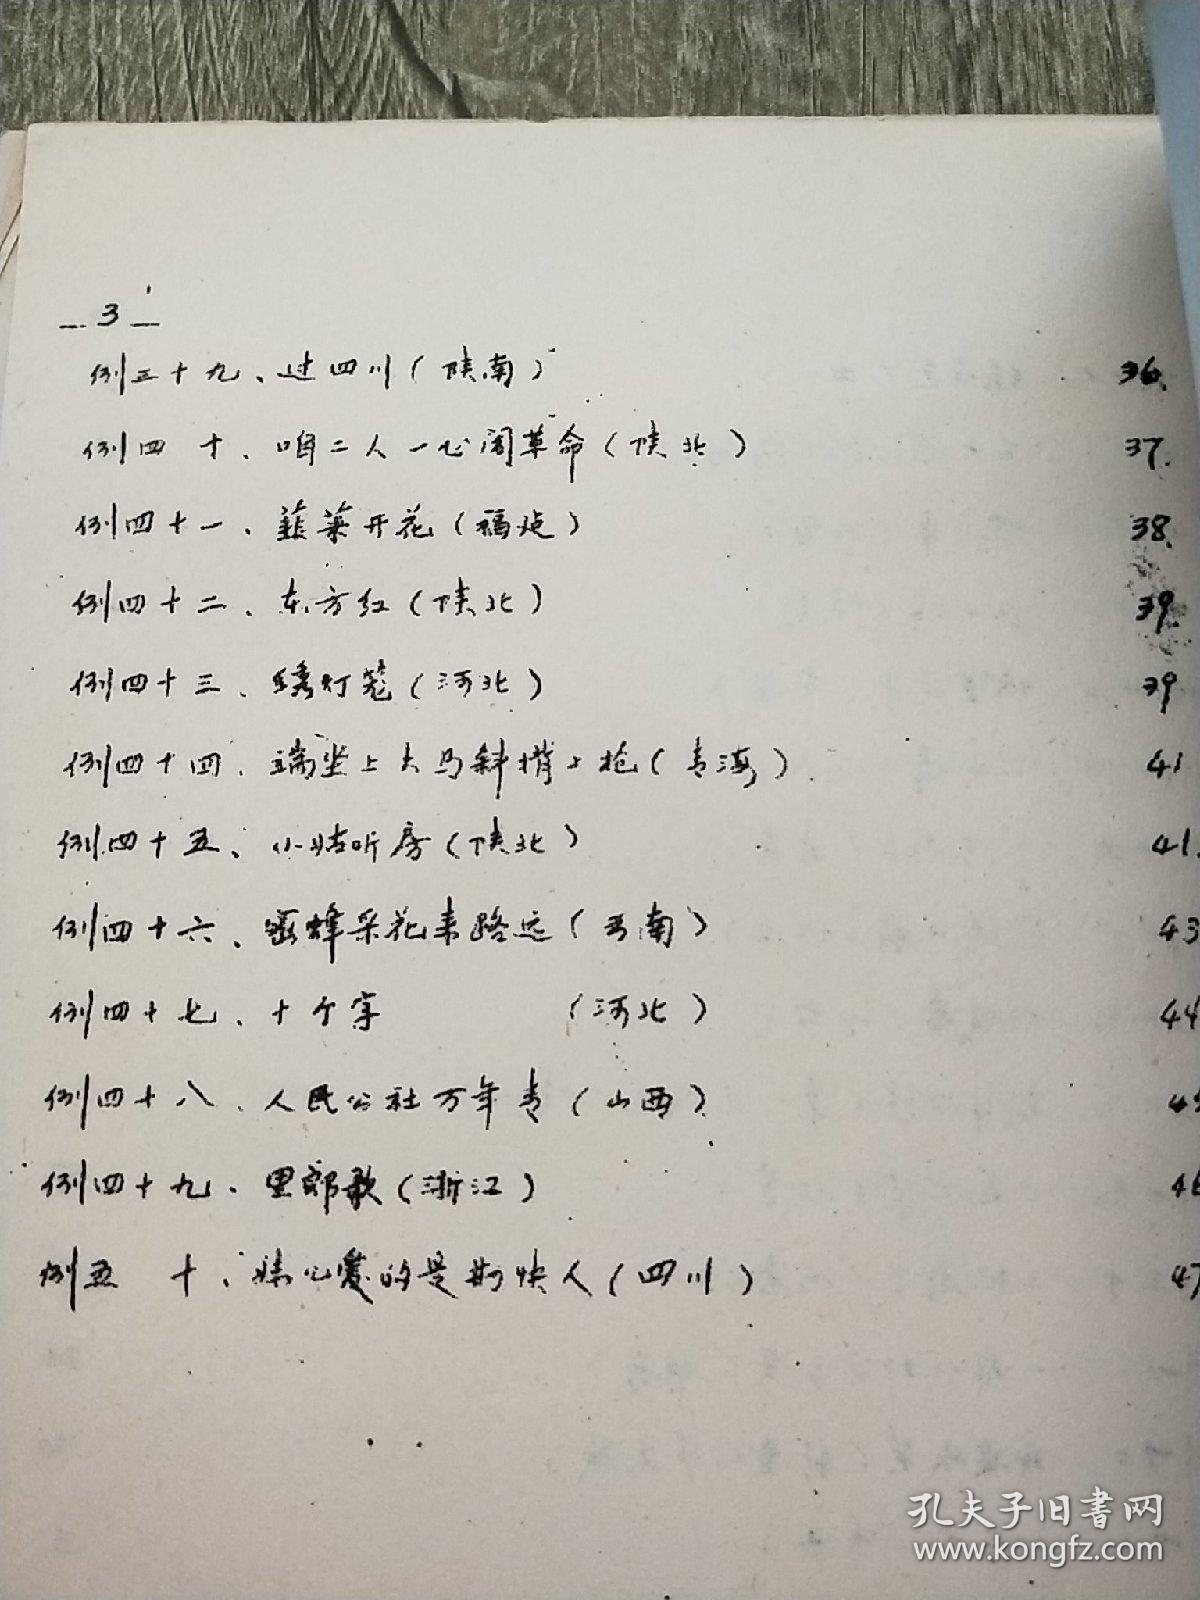 — 3 —
例三十九、过四川(陕南) 36.
例四 十、咱二人一心闹革命(陕北) 37.
例四十一、韮菜开花(福建) 38.
例四十二、东方红(陕北) 39.
例四十三、绣灯笼(河北) 39
例四十四、端坐上大马斜揹上枪(青海) 41
例四十五、小姑听房(陕北) 41.
例四十六、蜜蜂采花来路远(云南) 43
例四十七、十个字 (河北) 44
例四十八、人民公社万年青(山西) 4
例四十九、里郎歌(浙江) 46
例五 十、妹心爱的是勤快人(四川) 47
孔夫子旧书网
www.kongfz.com